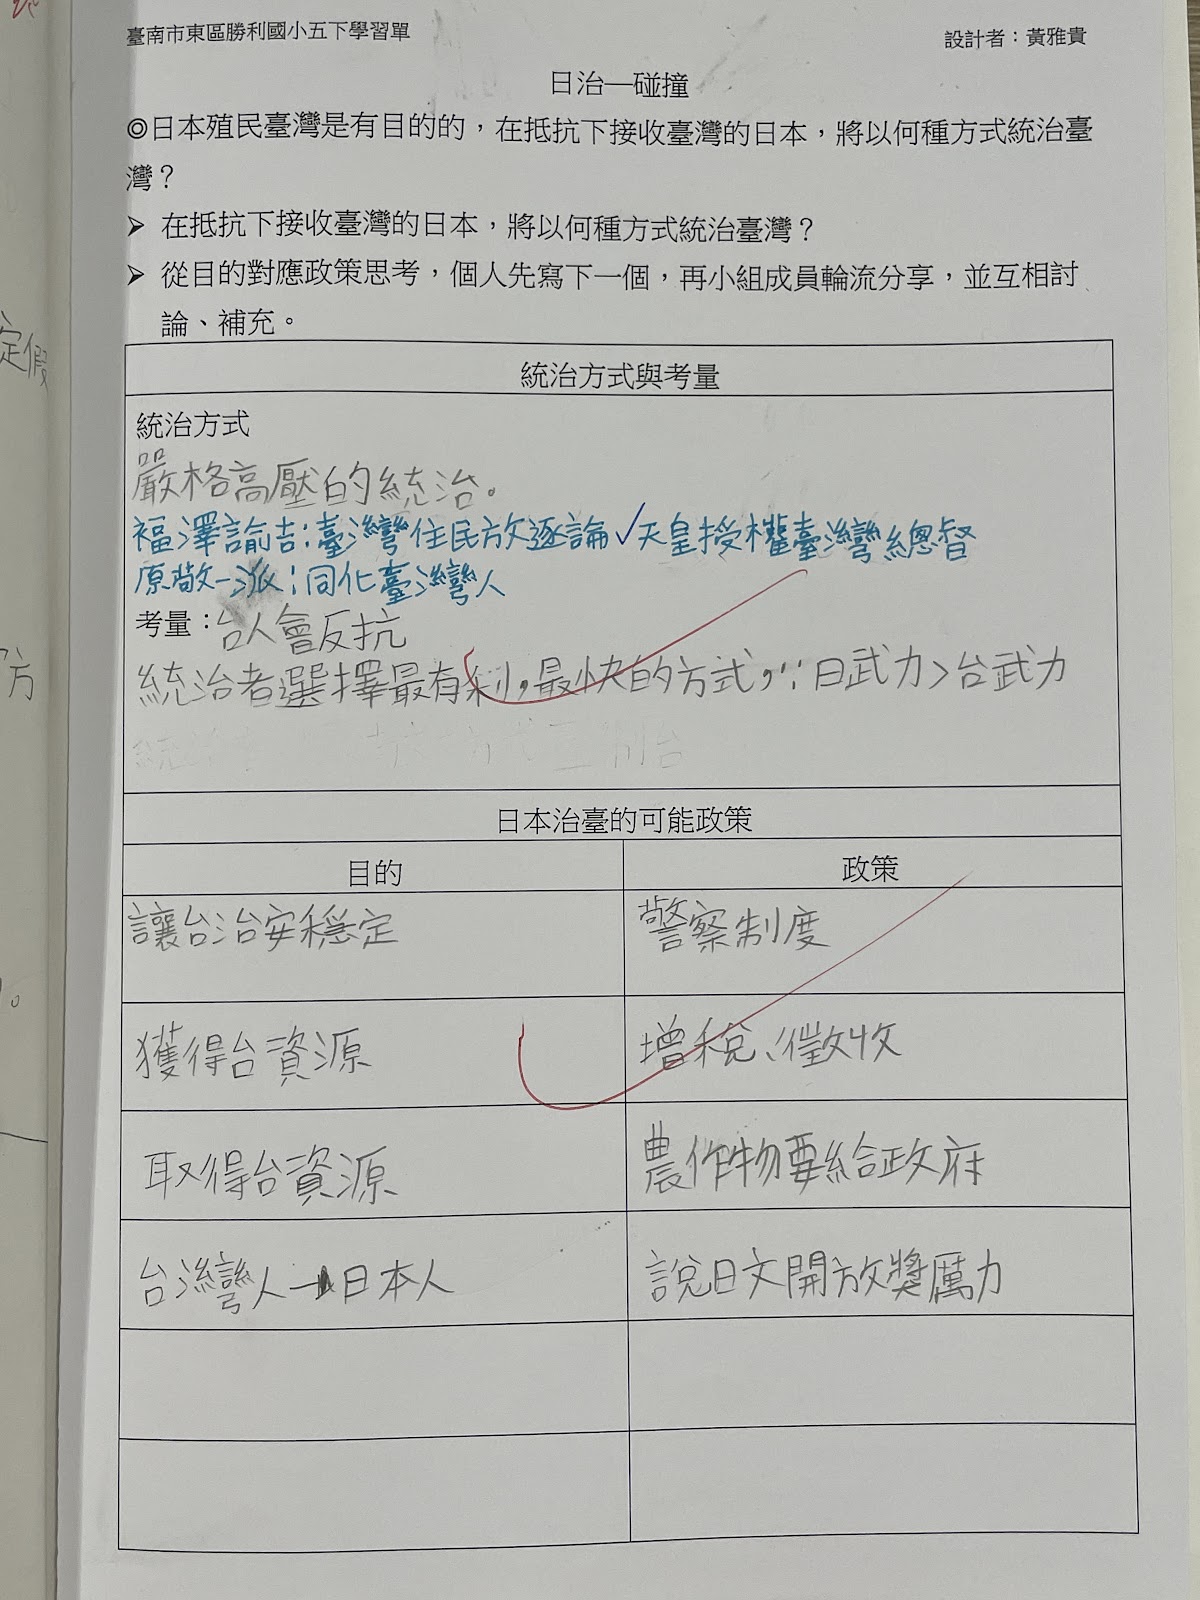 臺南市東區勝利國小五下學習單
設計者：黃雅貴
日治—碰撞
◎日本殖民臺灣是有目的的，在抵抗下接收臺灣的日本，將以何種方式統治臺
灣？
➢ 在抵抗下接收臺灣的日本，將以何種方式統治臺灣？
➢ 從目的對應政策思考，個人先寫下一個，再小組成員輪流分享，並互相討
論、補充。
統治方式與考量
統治方式
嚴格高壓的統治。
福澤諭吉：臺灣住民放逐論✓天皇授權臺灣總督
原敬一派：同化臺灣人
考量：台人會反抗
統治者選擇最有利，最快的方式，∵日武力>台武力
日本治臺的可能政策
目的
政策
讓台治安穩定
警察制度
獲得台資源
增稅、徵收
取得台資源
農作物要給政府
台灣人→日本人
說日文開放獎厲力
定假
方
。